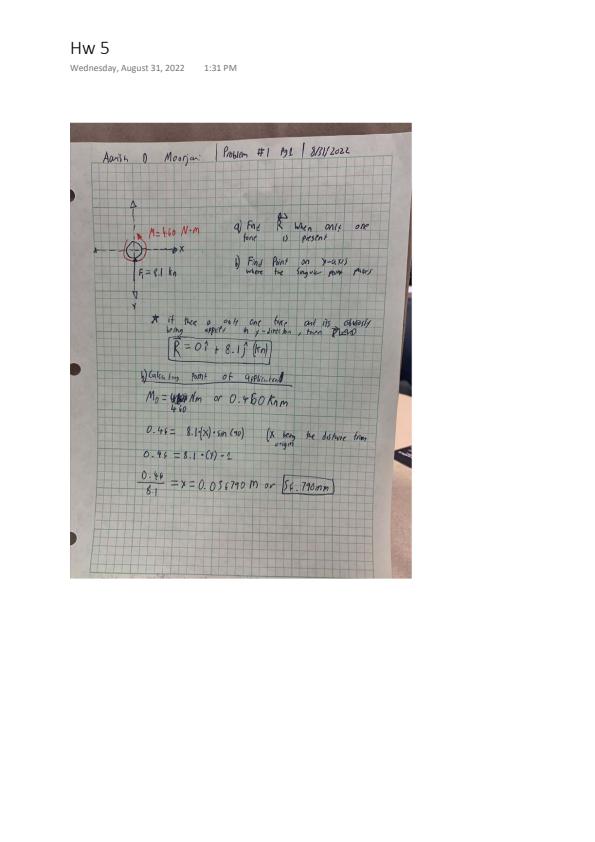 Hw 5
Wednesday, August 31, 2022 1:31 PM
Aarish D Moorjani | Problem #1 Pg1 | 8/31/2022
M=460 N-m
a) Find R when only one
force is present
x
F₁ = 8.1 kn
b) Find Point on y-axis
where the singular point passes
Y
* if there is only one force and its obviously
being applied in y-direction, then
R = 0î + 8.1ĵ (kn)
b) Calculating point of application
M₀ = Nm or 0.460 Knm
460
0.46 = 8.1(x)·sin(90) (x being the distance from
origin
0.46 = 8.1·(x)·1
0.46
8.1
= x = 0.056790 m or 56.790mm